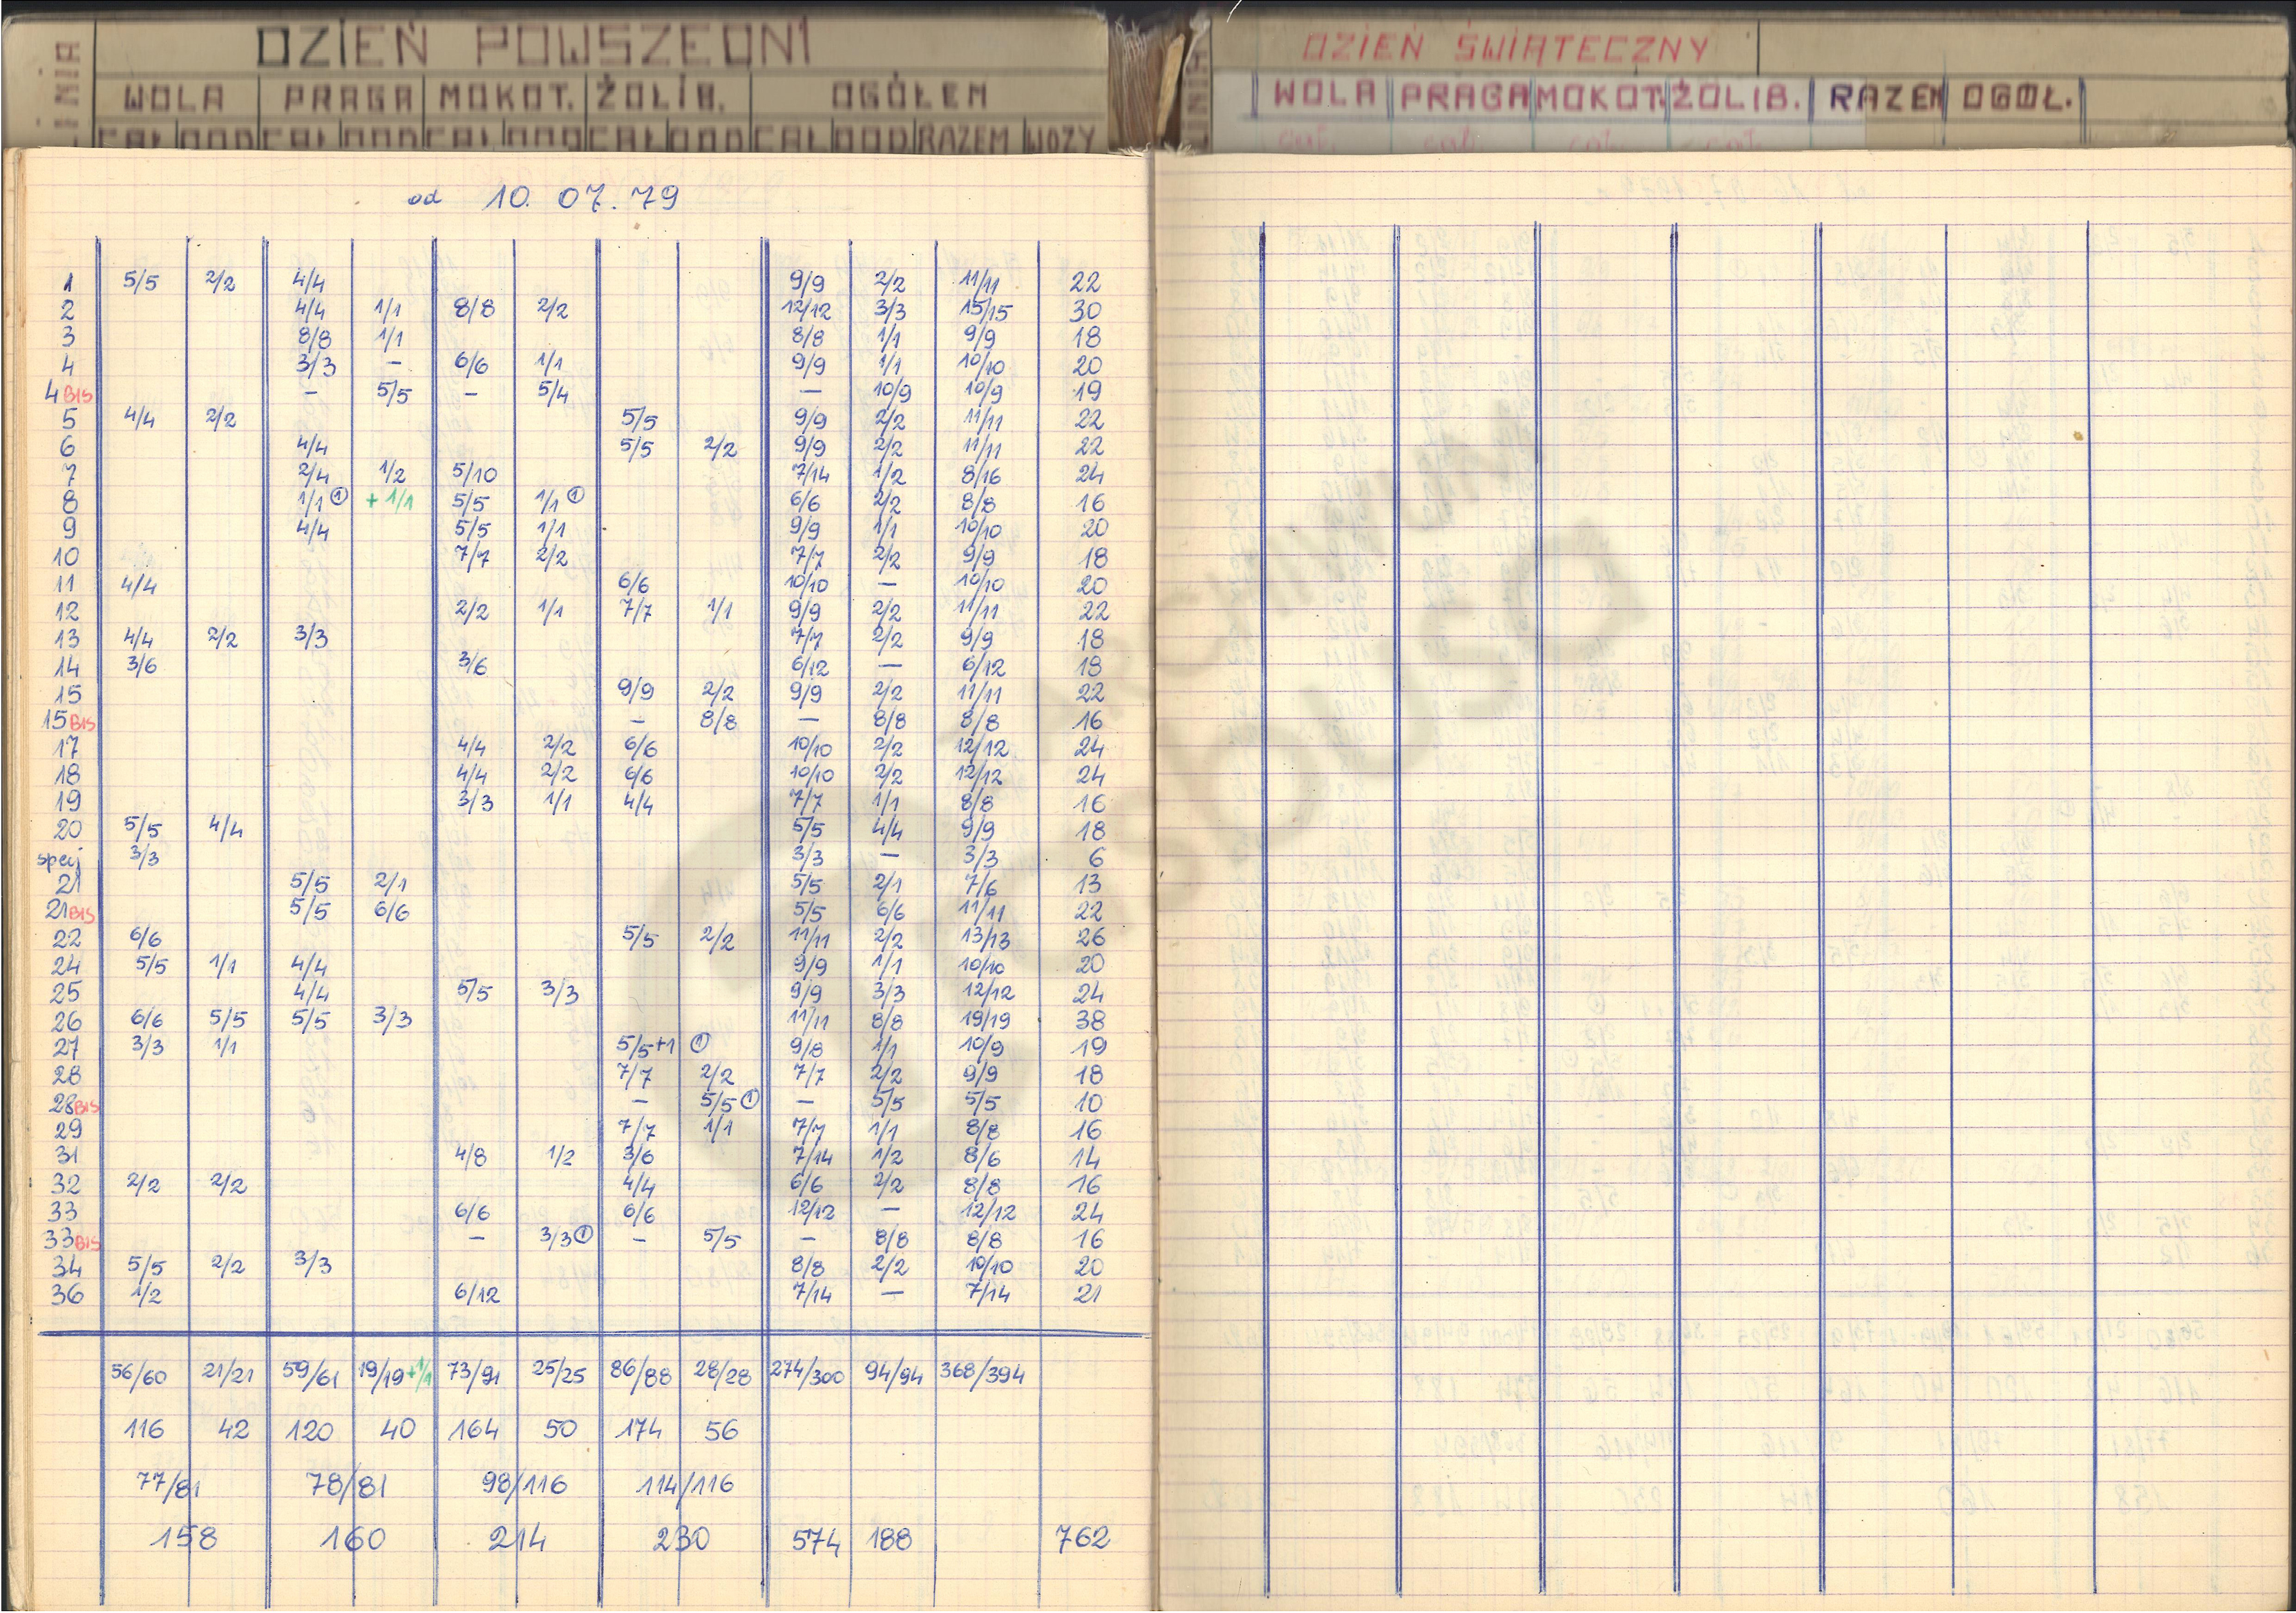 DZIEŃ POWSZEDNI
LINIA WOLA PRAGA MOKOT. ŻOLIB. OGÓŁEM
CAŁ DOD CAŁ DOD CAŁ DOD CAŁ DOD CAŁ DOD RAZEM WOZY
od 10. 07. 79
1 5/5 2/2 4/4 9/9 2/2 11/11 22
2 4/4 1/1 8/8 2/2 12/12 3/3 15/15 30
3 8/8 1/1 8/8 1/1 9/9 18
4 3/3 – 6/6 1/1 9/9 1/1 10/10 20
4 BIS – 5/5 – 5/4 – 10/9 10/9 19
5 4/4 2/2 5/5 9/9 2/2 11/11 22
6 4/4 5/5 2/2 9/9 2/2 11/11 22
7 2/4 1/2 5/10 7/14 1/2 8/16 24
8 1/1 ① + 1/1 5/5 1/1 ① 6/6 2/2 8/8 16
9 4/4 5/5 1/1 9/9 1/1 10/10 20
10 7/7 2/2 7/7 2/2 9/9 18
11 4/4 6/6 10/10 – 10/10 20
12 2/2 1/1 7/7 1/1 9/9 2/2 11/11 22
13 4/4 2/2 3/3 7/7 2/2 9/9 18
14 3/6 3/6 6/12 – 6/12 18
15 9/9 2/2 9/9 2/2 11/11 22
15 BIS – 8/8 – 8/8 8/8 16
17 4/4 2/2 6/6 10/10 2/2 12/12 24
18 4/4 2/2 6/6 10/10 2/2 12/12 24
19 3/3 1/1 4/4 7/7 1/1 8/8 16
20 5/5 4/4 5/5 4/4 9/9 18
specj 3/3 3/3 – 3/3 6
21 5/5 2/1 5/5 2/1 7/6 13
21 BIS 5/5 6/6 5/5 6/6 11/11 22
22 6/6 5/5 2/2 11/11 2/2 13/13 26
24 5/5 1/1 4/4 9/9 1/1 10/10 20
25 4/4 5/5 3/3 9/9 3/3 12/12 24
26 6/6 5/5 5/5 3/3 11/11 8/8 19/19 38
27 3/3 1/1 5/5+1 ① 9/8 1/1 10/9 19
28 7/7 2/2 7/7 2/2 9/9 18
28 BIS – 5/5 ① – 5/5 5/5 10
29 7/7 1/1 7/7 1/1 8/8 16
31 4/8 1/2 3/6 7/14 1/2 8/6 14
32 2/2 2/2 4/4 6/6 2/2 8/8 16
33 6/6 6/6 12/12 – 12/12 24
33 BIS – 3/3 ① – 5/5 – 8/8 8/8 16
34 5/5 2/2 3/3 8/8 2/2 10/10 20
36 1/2 6/12 7/14 – 7/14 21
56/60 21/21 59/61 19/19 +1/1 73/91 25/25 86/88 28/28 274/300 94/94 368/394
116 42 120 40 164 50 174 56
77/81 78/81 98/116 114/116
158 160 214 230 574 188 762
DZIEŃ ŚWIĄTECZNY
LINIA WOLA PRAGA MOKOT. ŻOLIB. RAZEM OGÓŁ.